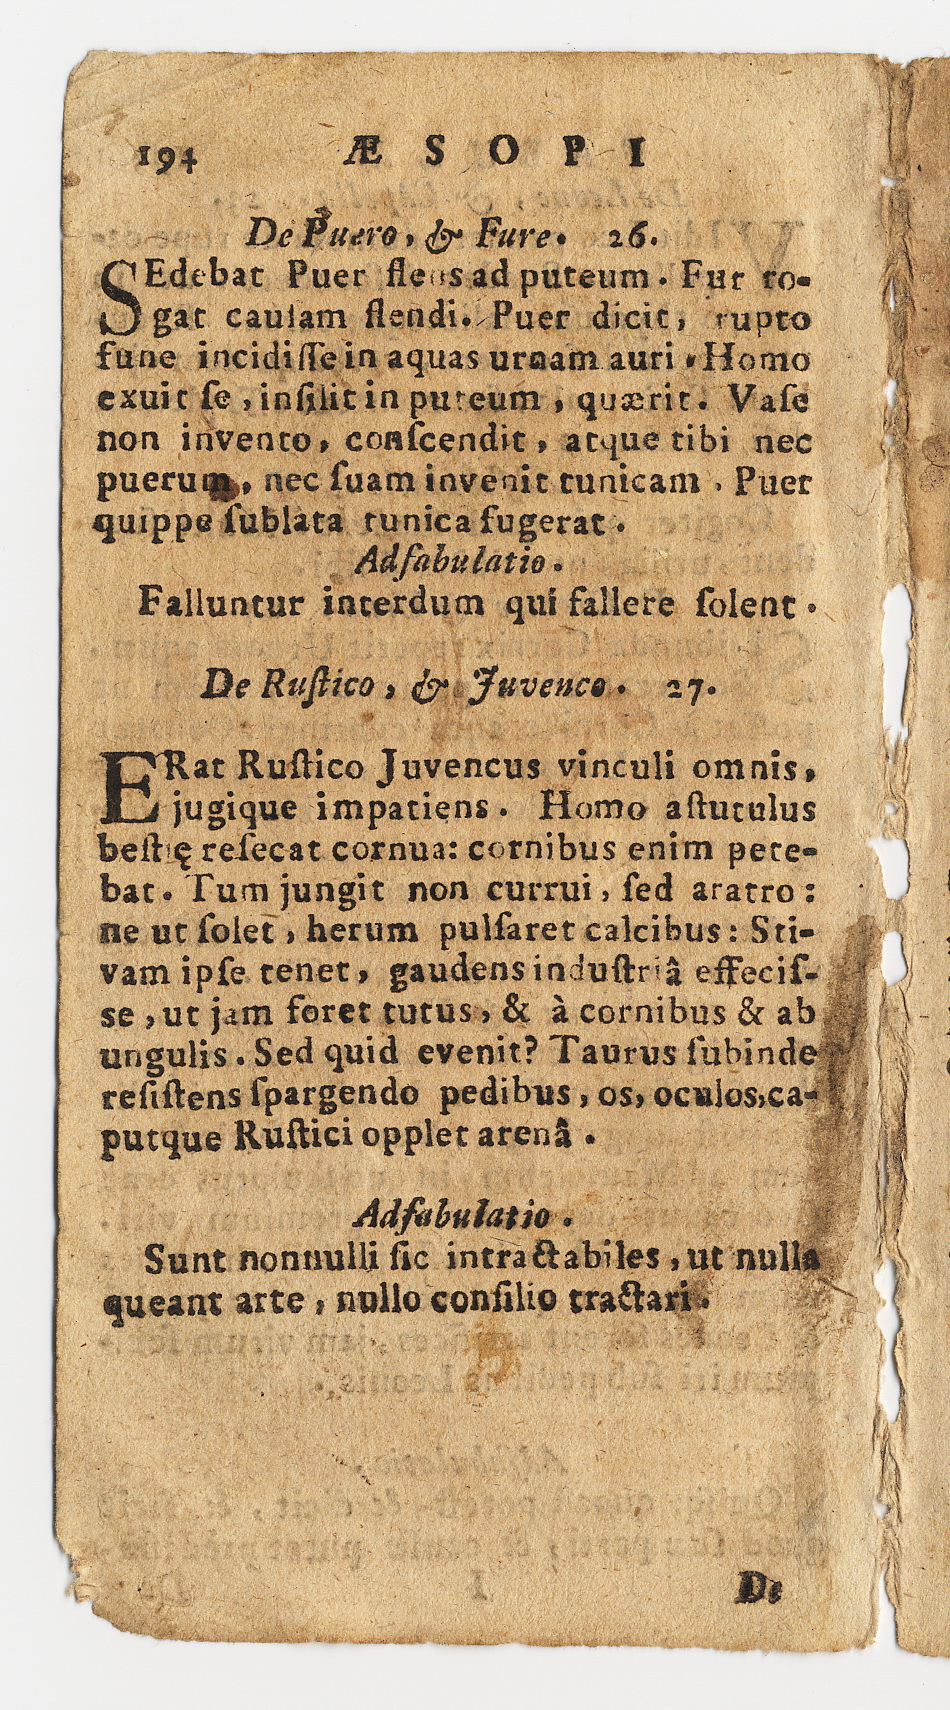 194 ÆSOPI
De Puero, & Fure. 26.
SEdebat Puer flens ad puteum. Fur ro-
gat cauſam flendi. Puer dicit, rupto
fune incidiſſe in aquas urnam auri. Homo
exuit ſe, inſilit in puteum, quærit. Vaſe
non invento, conſcendit, atque tibi nec
puerum, nec ſuam invenit tunicam. Puer
quippe ſublata tunica fugerat.
Adfabulatio.
Falluntur interdum qui fallere ſolent.
De Ruſtico, & Juvenco. 27.
ERat Ruſtico Juvencus vinculi omnis,
jugique impatiens. Homo aſtutulus
beſtię reſecat cornua: cornibus enim pete-
bat. Tum jungit non currui, ſed aratro:
ne ut ſolet, herum pulſaret calcibus: Sti-
vam ipſe tenet, gaudens induſtriâ effeciſ-
se, ut jam foret tutus, & à cornibus & ab
ungulis. Sed quid evenit? Taurus ſubinde
reſiſtens ſpargendo pedibus, os, oculos, ca-
putque Ruſtici opplet arenâ.
Adfabulatio.
Sunt nonnulli ſic intractabiles, ut nulla
queant arte, nullo conſilio tractari.
De